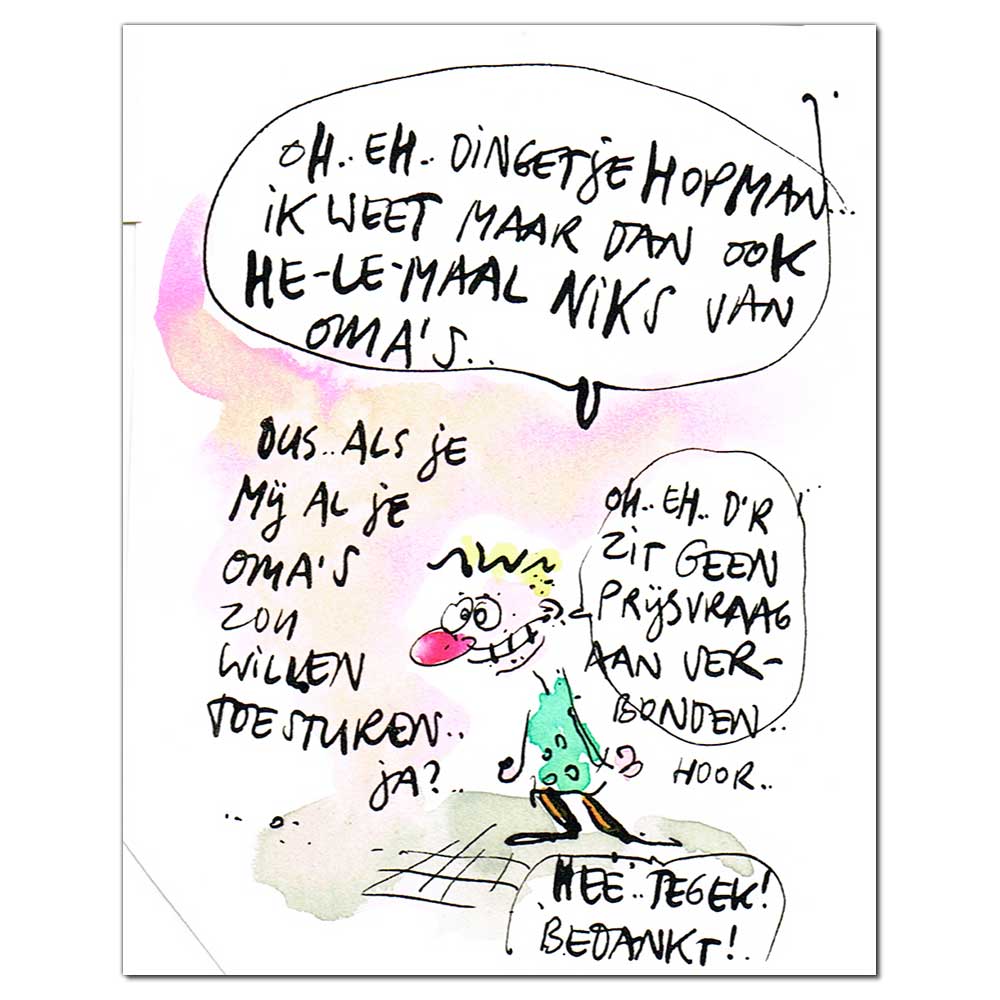 OH.. EH.. DINGETJE HOPMAN...
IK WEET MAAR DAN OOK
HE-LE-MAAL NIKS VAN
OMA'S..
DUS.. ALS JE
MIJ AL JE
OMA'S
ZOU
WILLEN
TOESTUREN..
JA?..
OH.. EH.. D'R
ZIT GEEN
PRIJSVRAAG
AAN VER-
BONDEN..
HOOR..
HEE.. TEGEK!
BEDANKT!..